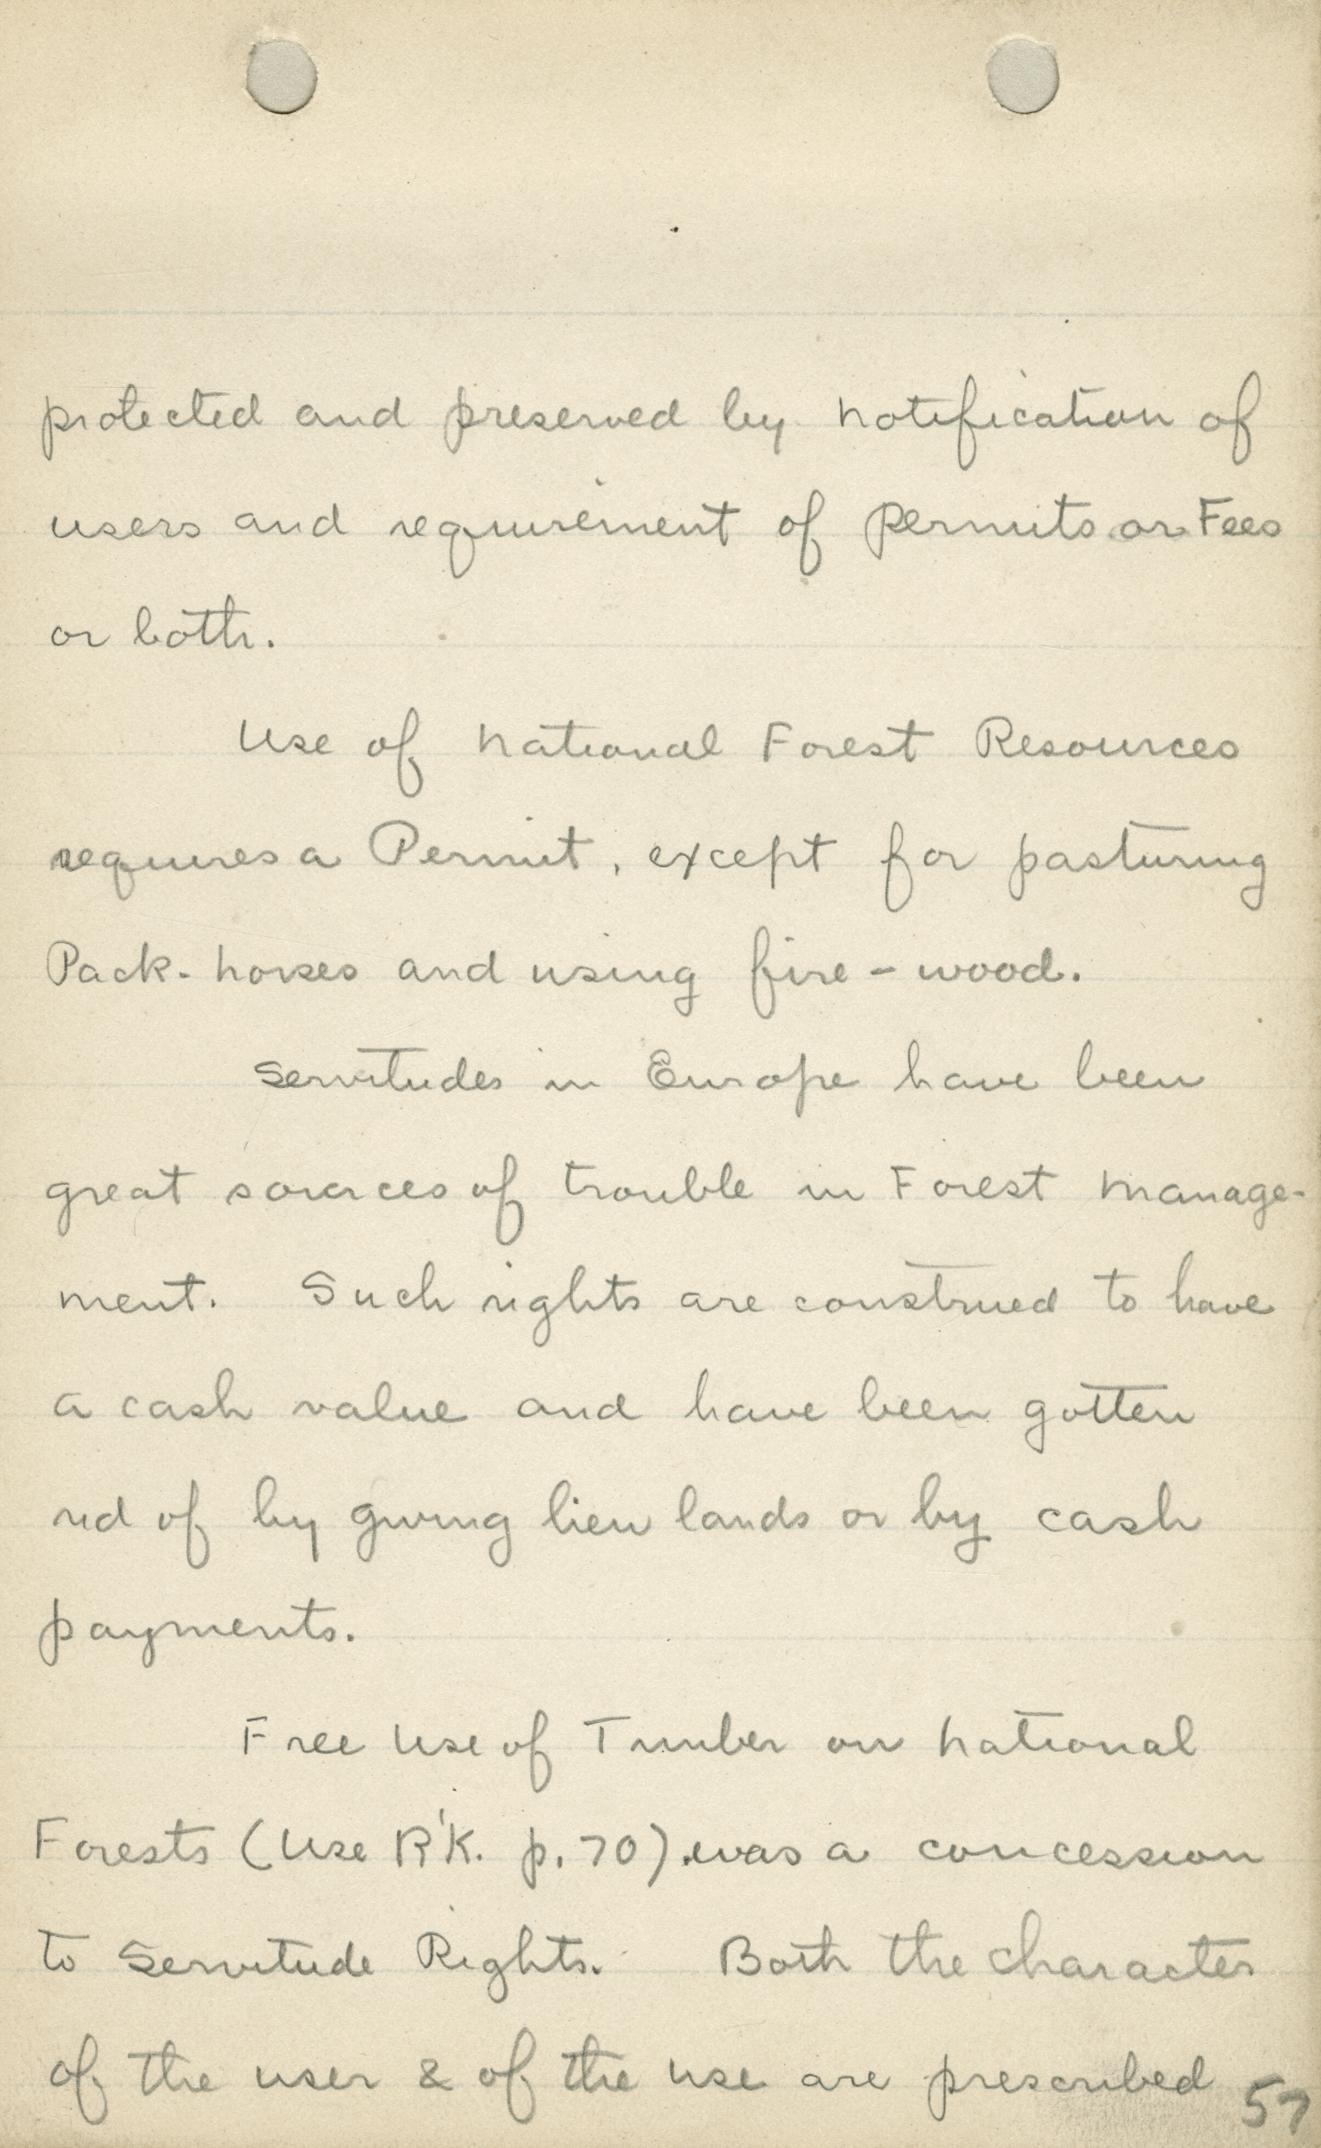 protected and preserved by notification of
users and requirement of permits or Fees
or both.
Use of National Forest Resources
requires a Permit, except for pasturing
Pack-horses and using fire-wood.
Servitudes in Europe have been
great sources of trouble in Forest Manage-
ment. Such rights are construed to have
a cash value and have been gotten
rid of by giving lieu lands or by cash
payments.
Free Use of Timber on National
Forests (Use B'K. p. 70) was a concession
to Servitude Rights. Both the character
of the user & of the use are prescribed
57